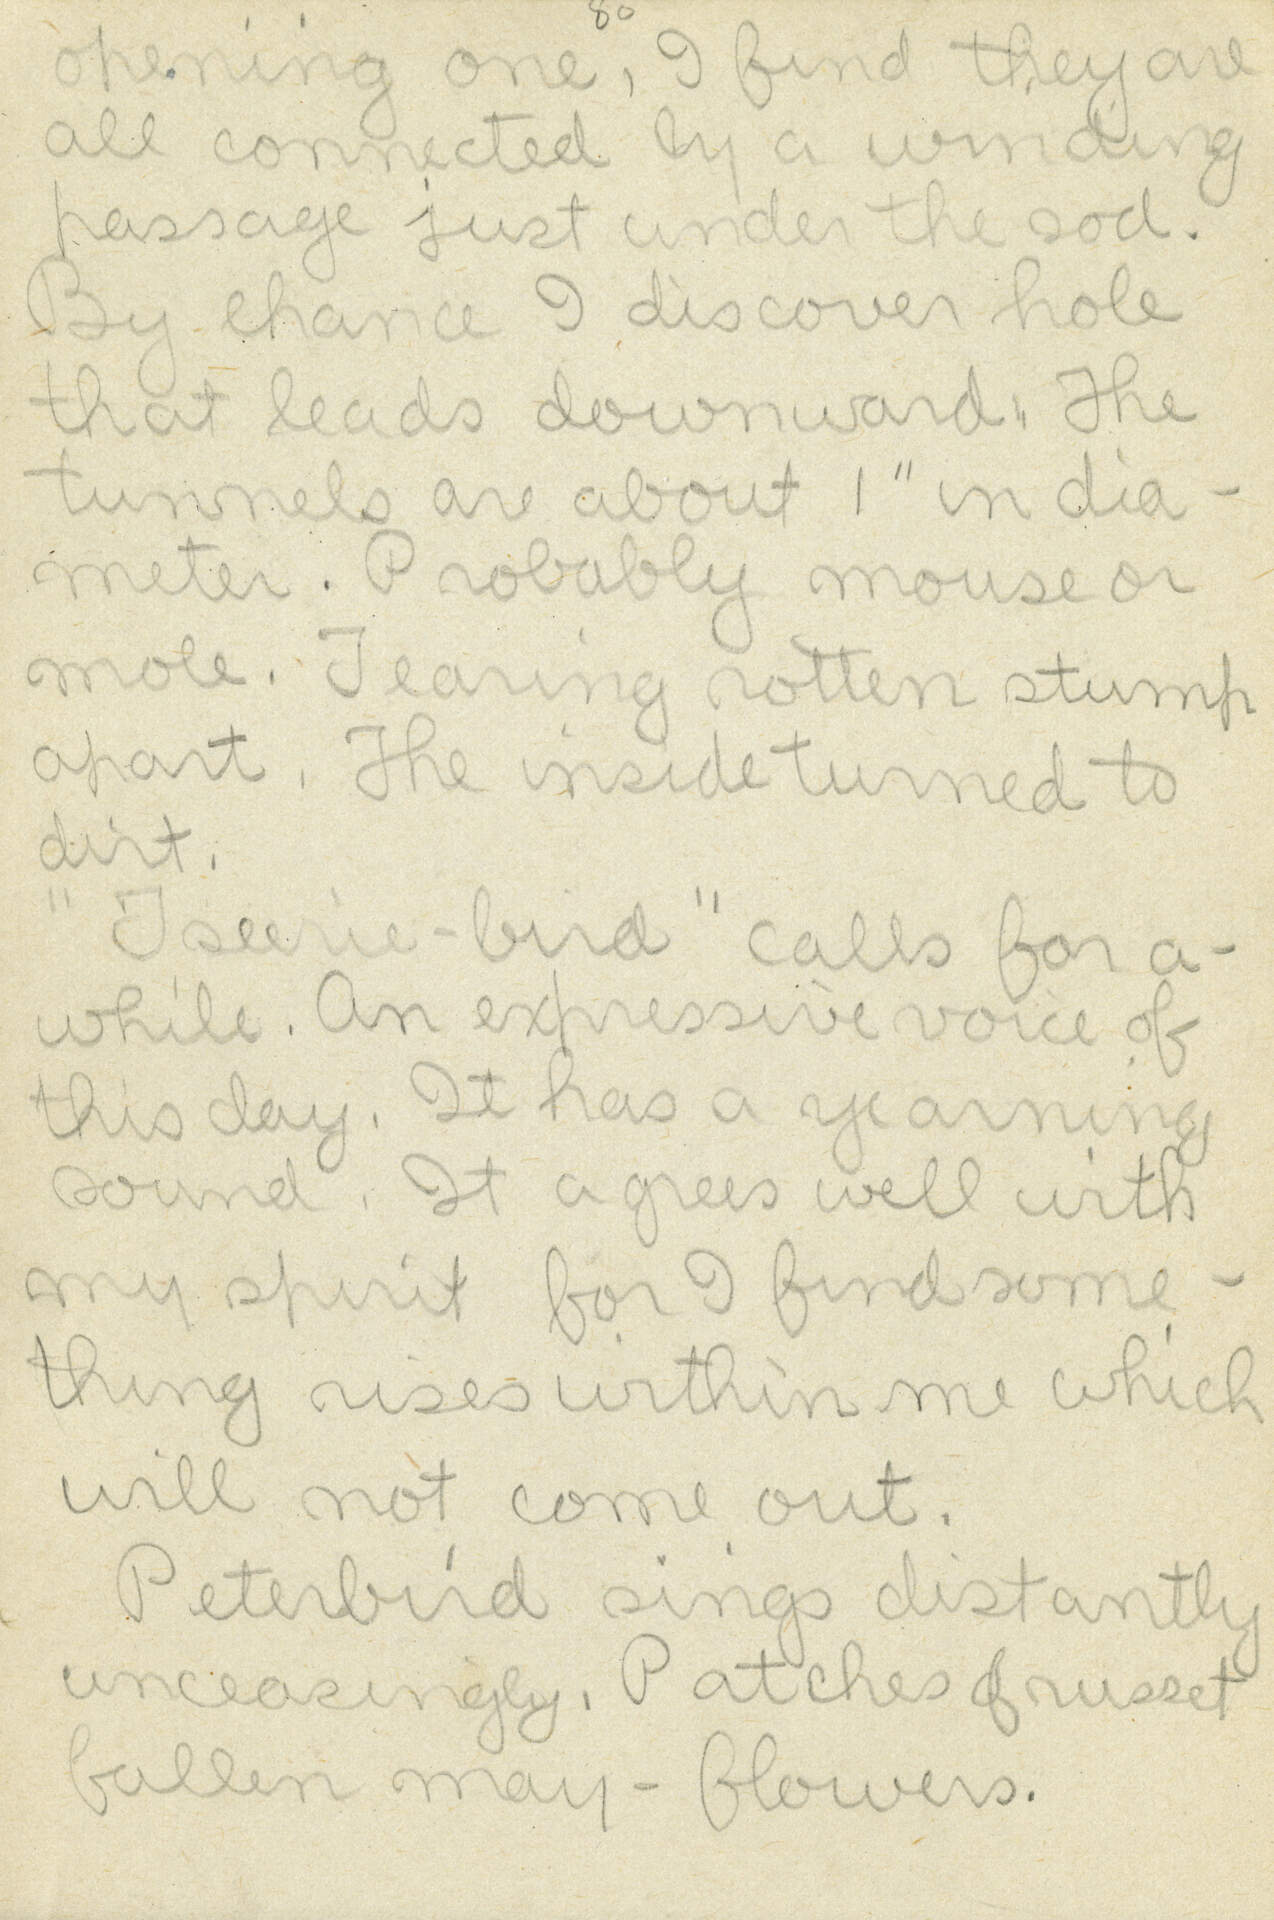 80
opening one, I find they are
all connected by a winding
passage just under the sod.
By chance I discover hole
that leads downward. The
tunnels are about 1" in dia-
meter. Probably mouse or
mole. Tearing rotten stump
apart. The inside turned to
dirt.
"Tseerie-bird" calls for a-
while. An expressive voice of
this day. It has a yearning
sound. It agrees well with
my spirit for I find some-
thing rises within me which
will not come out.
Peterbird sings distantly
unceasingly. Patches of russet
fallen may-flowers.